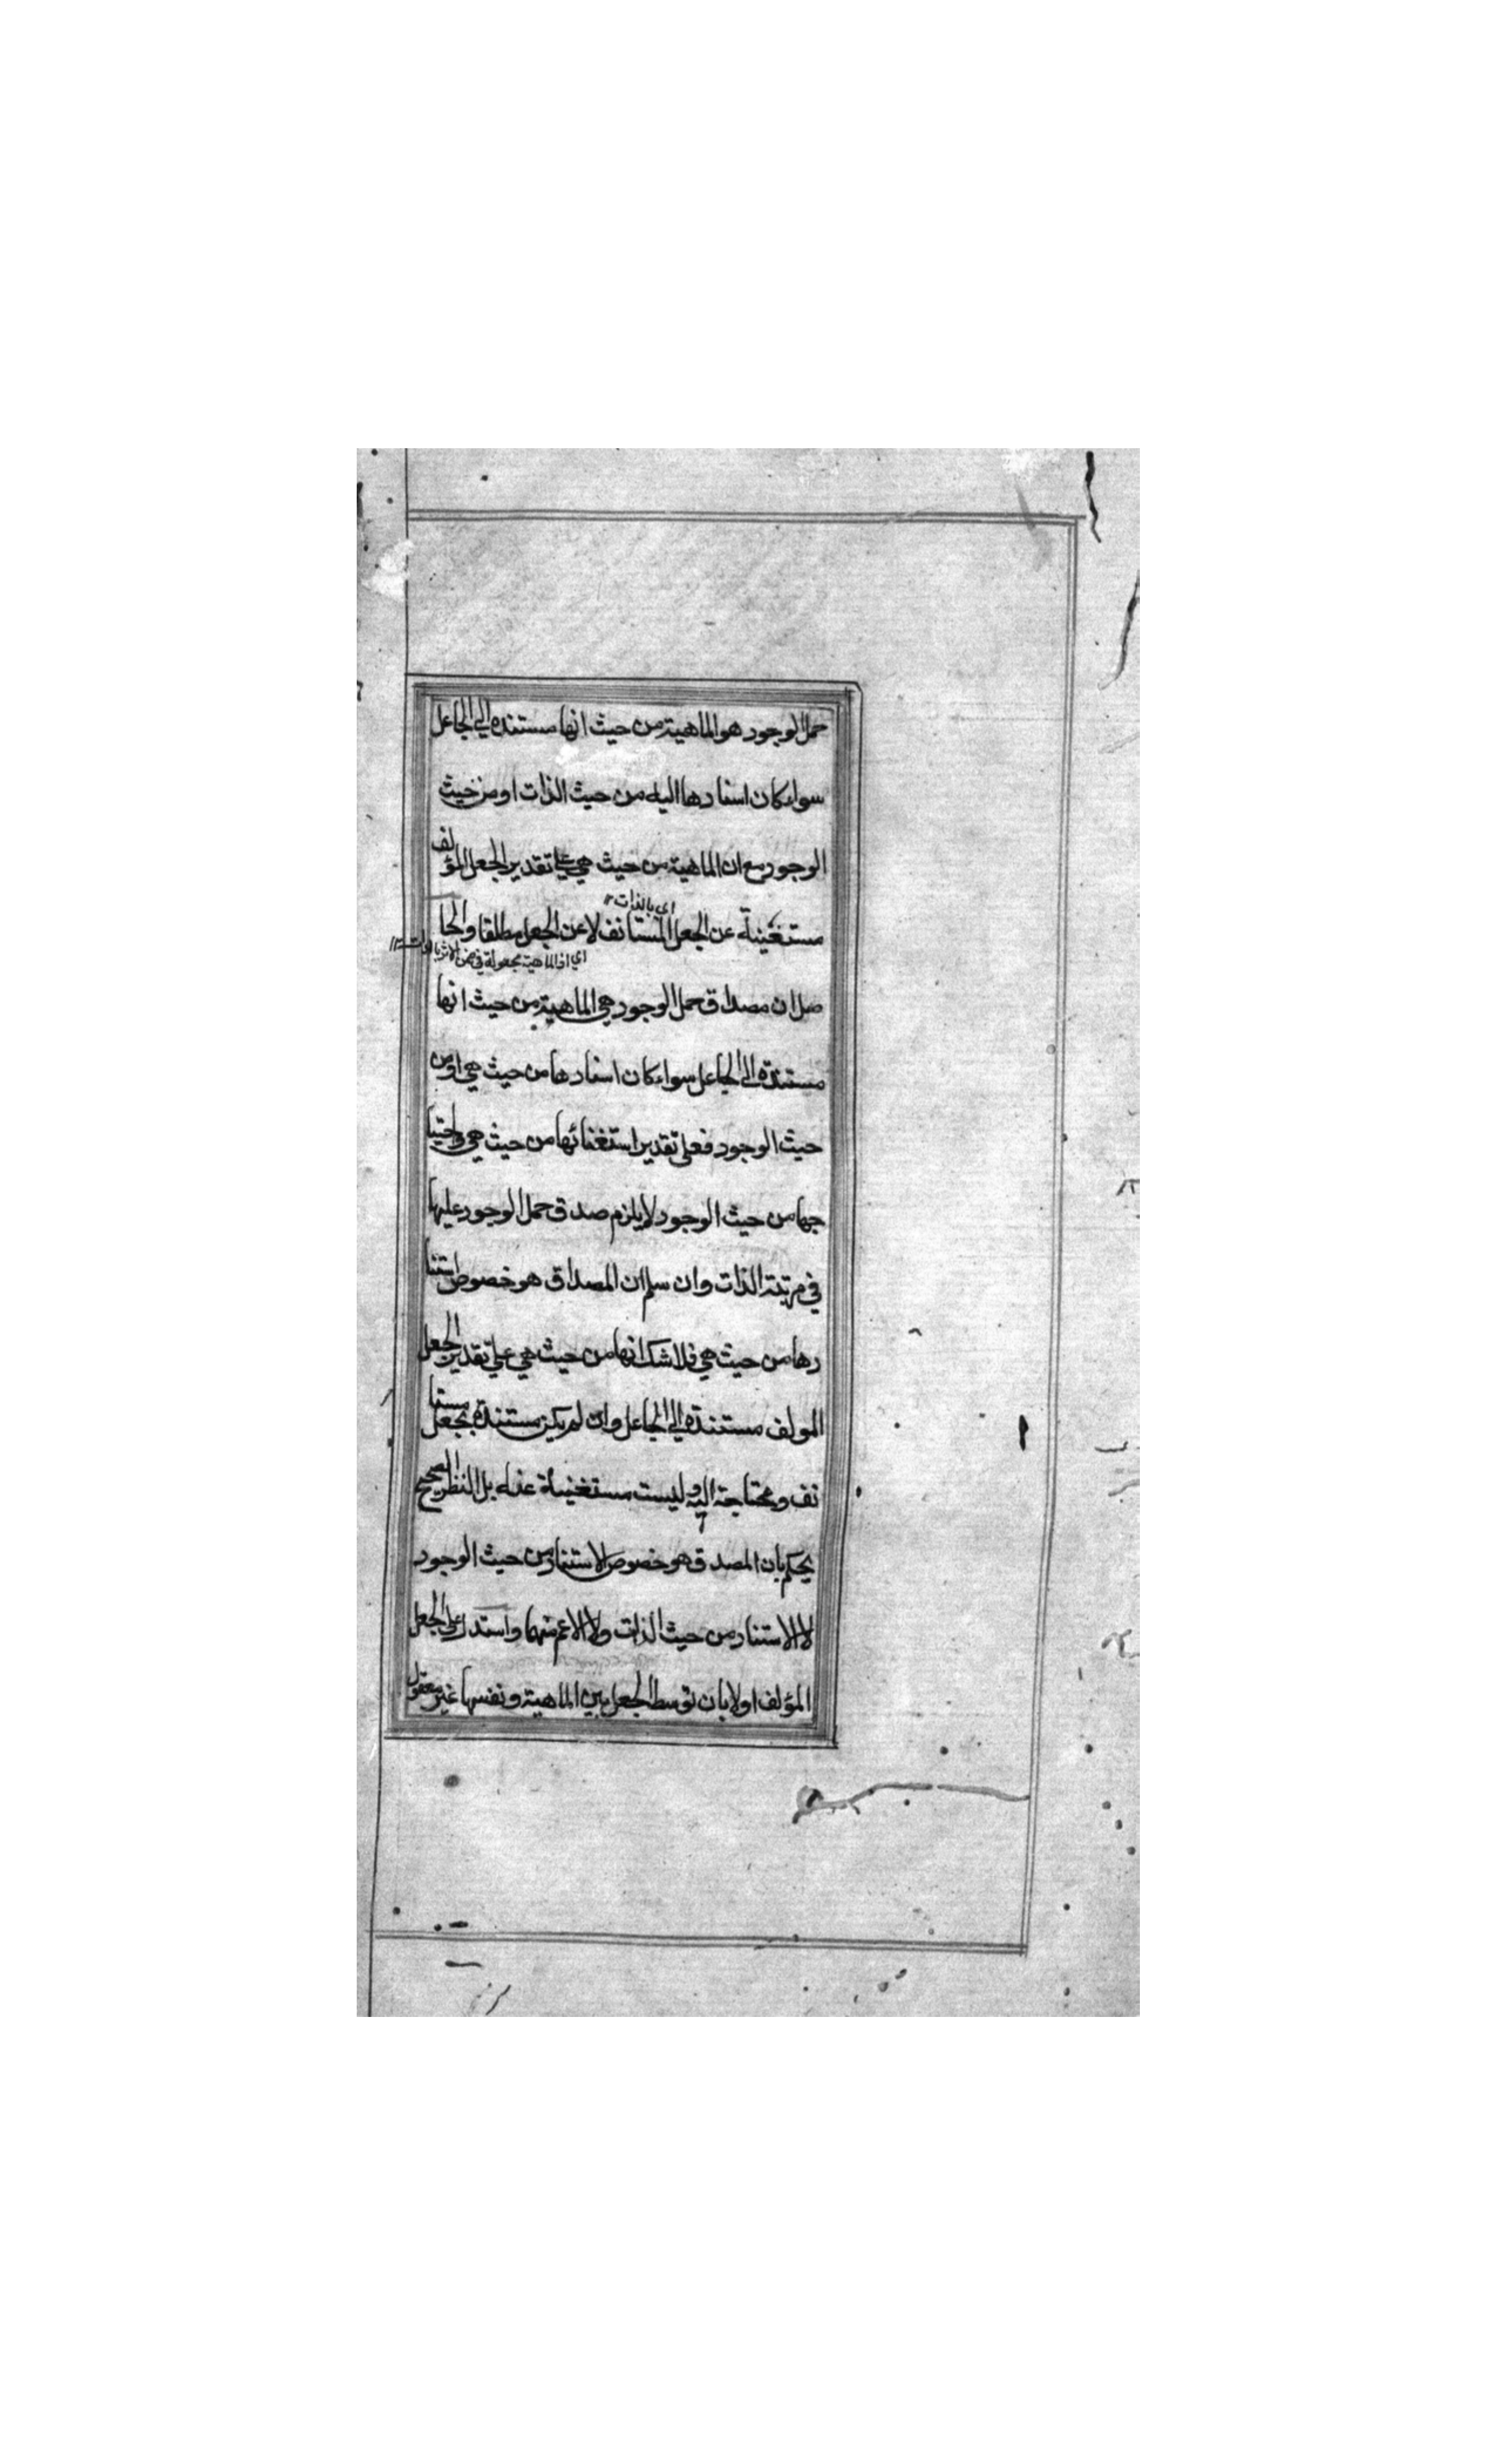 حمل الوجود هو الماهية من حيث انها مستنده الي الجاعل
سواء كان اسنادها اليه من حيث الذات او من حيث
الوجود مع ان الماهية من حيث هي علي تقدير الجعل المؤلف
اي بالذات ١٢
مستغنية عن الجعل المستانف لا عن الجعل مطلقا والحا
اي اذ الماهية مجعولة في ضمن
صل ان مصداق حمل الوجود هي الماهية من حيث انها
مستندة الي الجاعل سواء كان اسنادها من حيث هي او من
حيث الوجود فعلي تقدير استغنائها من حيث هي واحتيا
جها من حيث الوجود لا يلزم صدق حمل الوجود عليها
في مرتبة الذات وان سلم ان المصداق هو خصوص استنا
دها من حيث هي فلا شك انها من حيث هي علي تقدير الجعل
المولف مستندة الي الجاعل وان لم يكن مستندة بجعل مستا
نف ومحتاجة اليه وليست مستغنية عنه بل النظر الصحيح
يحكم بان المصدق هو خصوص الاستناد من حيث الوجود
لا الاستناد من حيث الذات ولا الاعم منهما واستدل علي الجعل
المؤلف اولا بان توسط الجعل بين الماهية ونفسها غير معقول